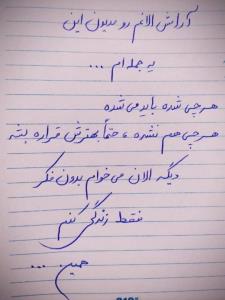 آرامش الانم رو مدیون این
یه جمله ام ...
هرچی شده باید می شده
هرچی هم نشده ، حتماً بهترش قراره بشه
دیگه الان می خوام بدون فکر
فقط زندگی کنم
همین ...